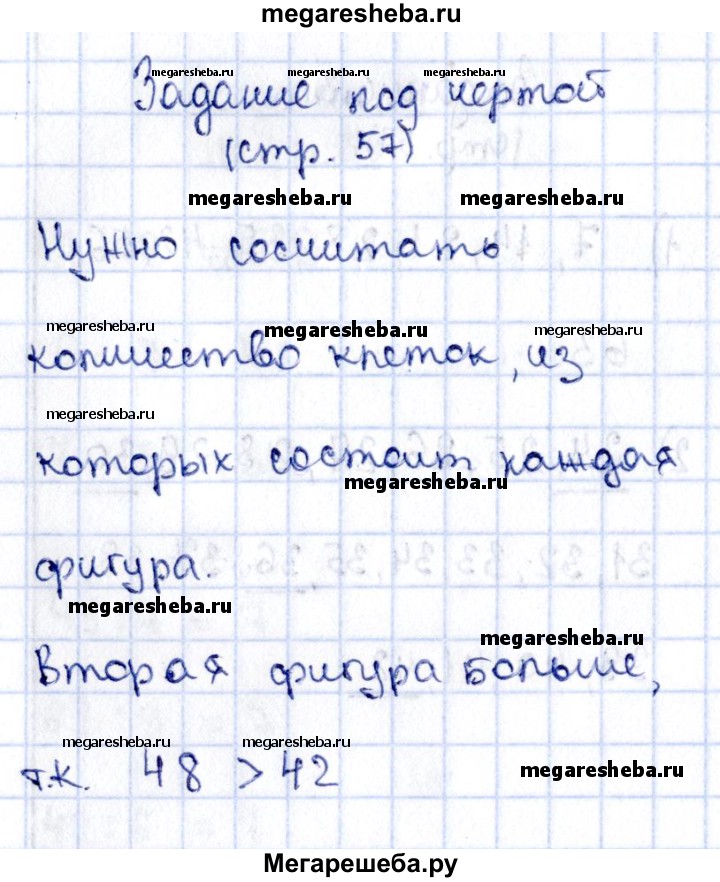 megaresheba.ru
megaresheba.ru megaresheba.ru megaresheba.ru
Задание под чертой
(стр. 57)
megaresheba.ru megaresheba.ru
Нужно сосчитать
megaresheba.ru megaresheba.ru megaresheba.ru
количество клеток, из
megaresheba.ru
которых состоит каждая
megaresheba.ru
фигура.
megaresheba.ru
megaresheba.ru
Вторая фигура больше,
megaresheba.ru megaresheba.ru
т.к. 48 > 42
megaresheba.ru
Мегарешеба.ру